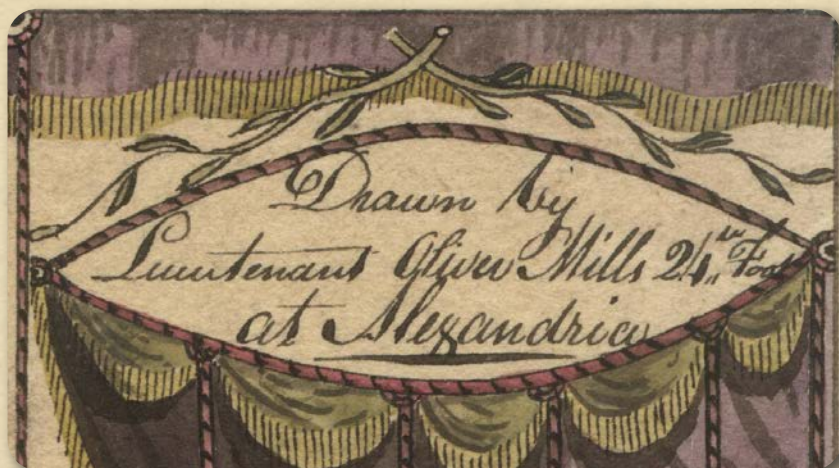 Drawn by
Lieutenant Oliver Mills 24th Foot
at Alexandria